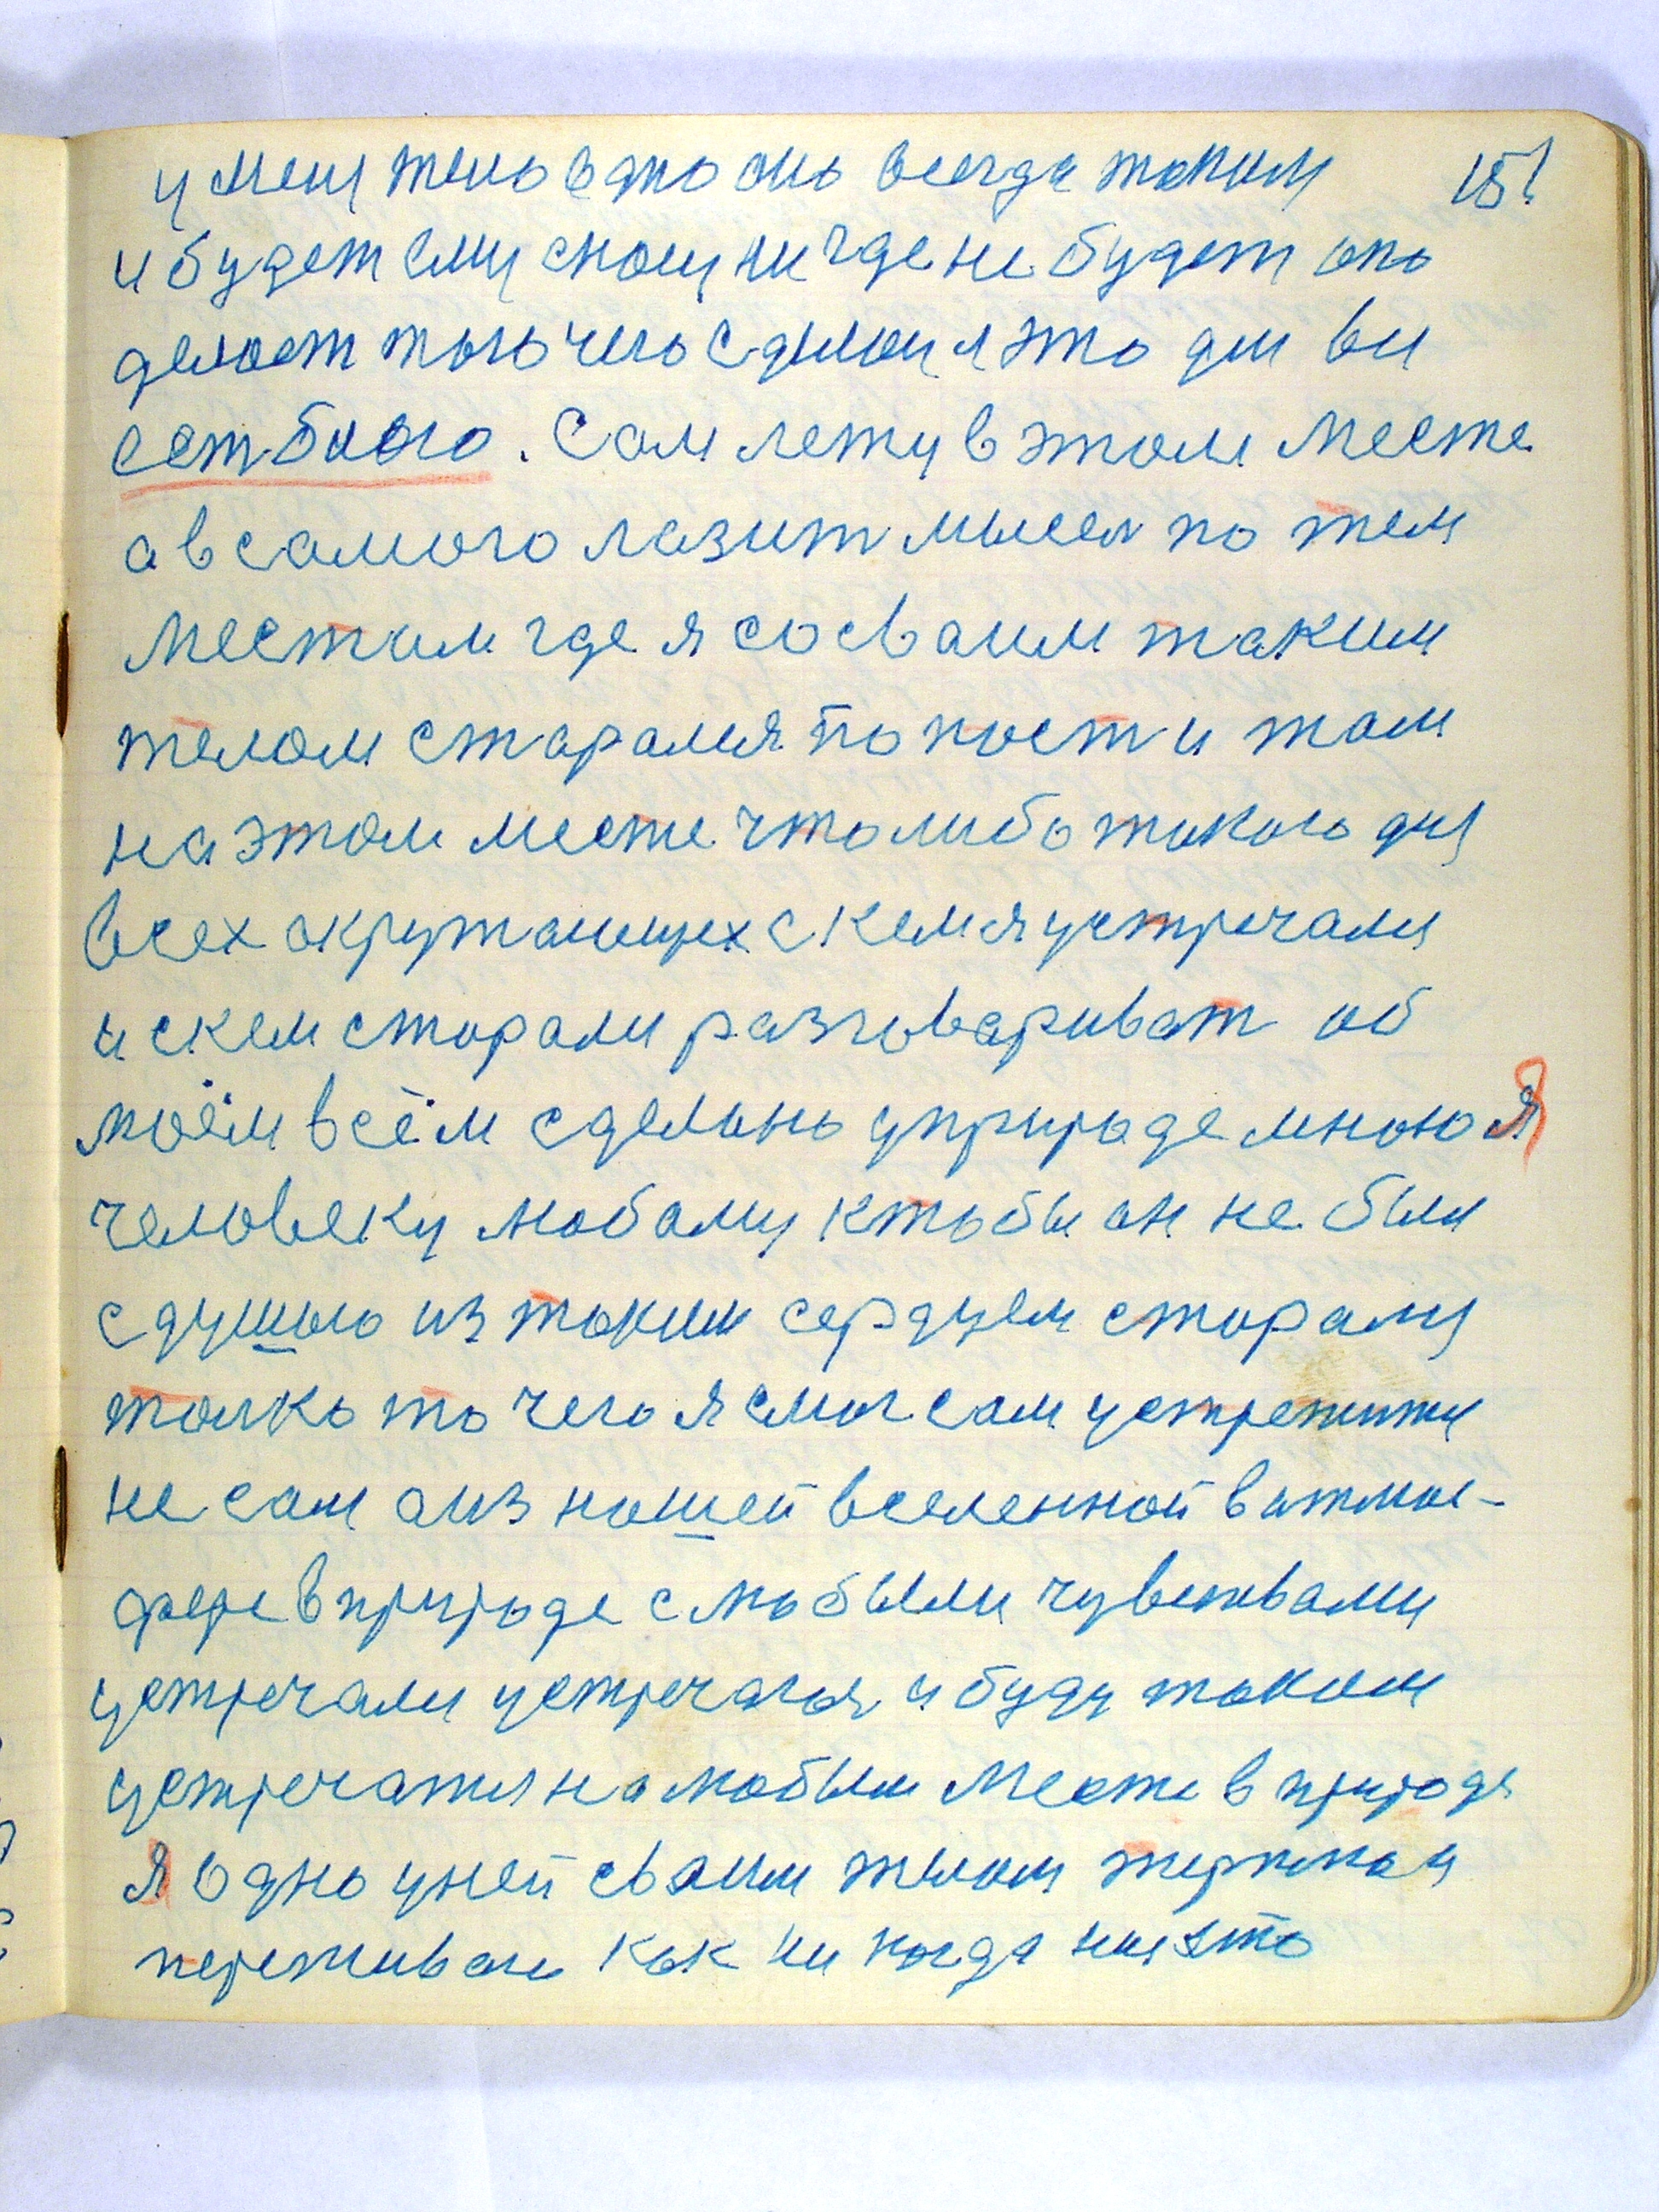 у меня тело одно оно всегда таким 151
и будет ему спои ни где не будет оно
делает того чего сделал я это дли ви
сет благо. Сам лежу в этом месте
а в самого лазит мысел по тем
местам где я со сваим таким
телом старался по поести там
на этом месте что либо токого для
всех окружающих с кем я устречался
и с кем старался разговариват об
моём всём сделано у природе мною Я
человеку любому кто бы он не был
с душою из таким сердцем старался
толко то чего я смог сам устрежитц
не сам а из нашей вселенной в атмос-
фере в природе с любыми чувствами
устречался устречаюсь и буду таким
устречатся на любым месте в природе
Я одно у ней сваим телом терпил и
переживал как ни когда никто